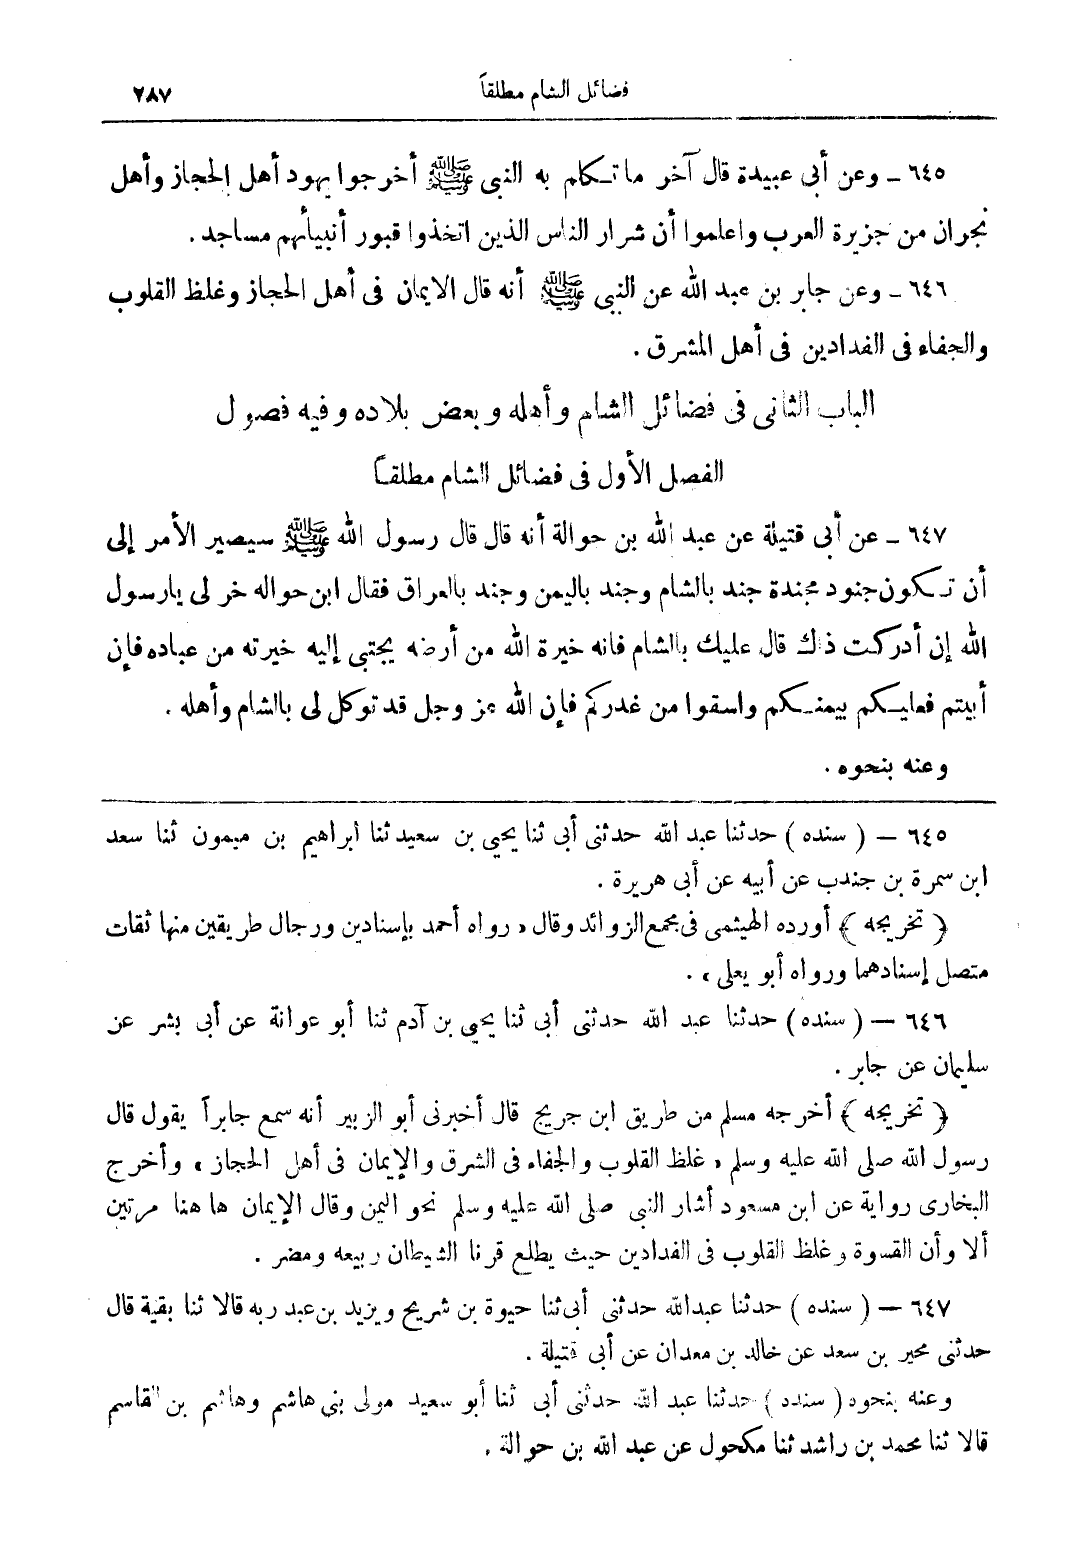 فضائل الشام مطلقاً ٢٨٧
٦٤٥ ـ وعن أبى عبيدة قال آخر ما تكلم به النبى ﷺ أخرجوا يهود أهل الحجاز وأهل
نجران من جزيرة العرب واعلموا أن شرار الناس الذين اتخذوا قبور أنبيائهم مساجد.
٦٤٦ ـ وعن جابر بن عبد الله عن النبى ﷺ أنه قال الايمان فى أهل الحجاز وغلظ القلوب
والجفاء فى الفدادين فى أهل المشرق.
الباب الثانى فى فضائل الشام وأهله وبعض بلاده وفيه فصول
الفصل الأول فى فضائل الشام مطلقاً
٦٤٧ ـ عن أبى قتيلة عن عبد الله بن حوالة أنه قال قال رسول الله ﷺ سيصير الأمر إلى
أن تكون جنود مجندة جند بالشام وجند باليمن وجند بالعراق فقال ابن حواله خر لى يارسول
الله إن أدركت ذاك قال عليك بالشام فانه خيرة الله من أرضه يجتبى إليه خيرته من عباده فإن
أبيتم فعليكم بيمنكم واسقوا من غدركم فإن الله عز وجل قد توكل لى بالشام وأهله.
وعنه بنحوه.
٦٤٥ — ( سنده ) حدثنا عبد الله حدثنى أبى ثنا يحيى بن سعيد ثنا ابراهيم بن ميمون ثنا سعد
ابن سمرة بن جندب عن أبيه عن أبى هريرة.
﴿ تخريجه ﴾ أورده الهيثمى فى مجمع الزوائد وقال « رواه أحمد بإسنادين ورجال طريقين منها ثقات
متصل إسنادهما ورواه أبو يعلى » .
٦٤٦ — ( سنده ) حدثنا عبد الله حدثنى أبى ثنا يحيى بن آدم ثنا أبو عوانة عن أبى بشر عن
سليمان عن جابر.
﴿ تخريجه ﴾ أخرجه مسلم من طريق ابن جريج قال أخبرنى أبو الزبير أنه سمع جابراً يقول قال
رسول الله صلى الله عليه وسلم « غلظ القلوب والجفاء فى الشرق والإيمان فى أهل الحجاز » وأخرج
البخارى رواية عن ابن مسعود أشار النبى صلى الله عليه وسلم نحو اليمن وقال الإيمان ها هنا مرتين
ألا وأن القسوة وغلظ القلوب فى الفدادين حيث يطلع قرنا الشيطان ربيعه ومضر.
٦٤٧ — ( سنده ) حدثنا عبدالله حدثنى أبى ثنا حيوة بن شريح ويزيد بن عبد ربه قالا ثنا بقية قال
حدثنى محير بن سعد عن خالد بن معدان عن أبى قتيلة.
وعنه بنحوه ( سنده ) حدثنا عبد الله حدثنى أبى ثنا أبو سعيد مولى بنى هاشم وهاشم بن القاسم
قالا ثنا محمد بن راشد ثنا مكحول عن عبد الله بن حوالة.